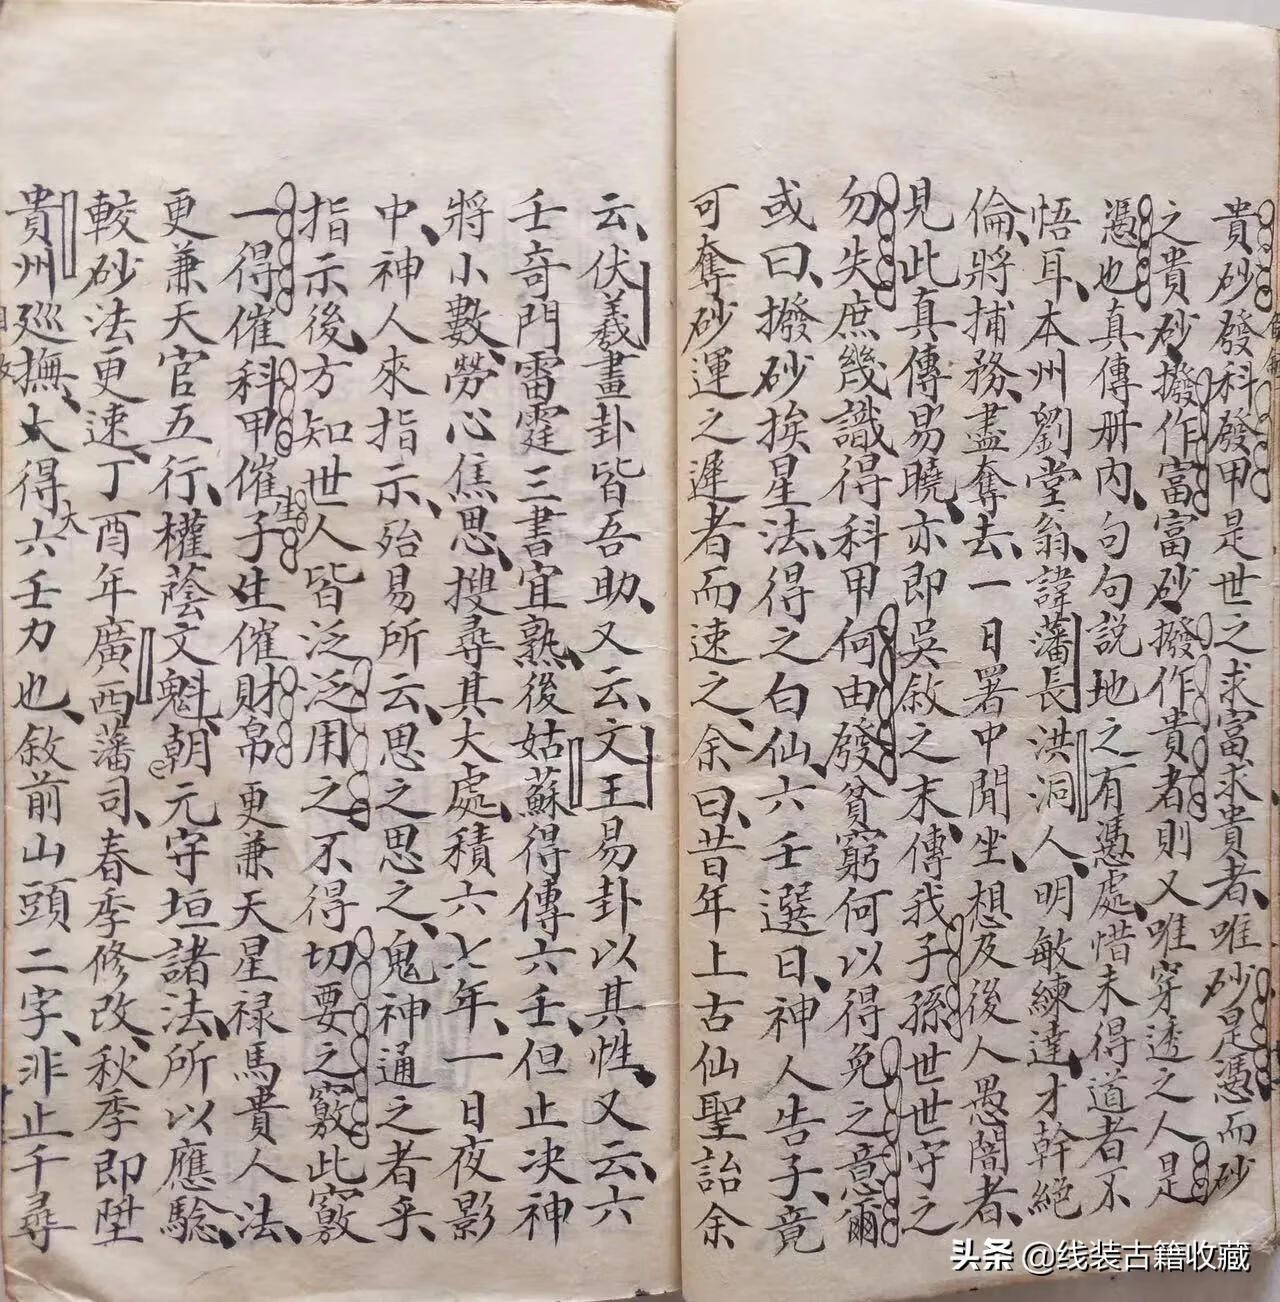 貴砂發科發甲是世之求富求貴者、唯砂是憑而砂
之貴砂、撥作富富砂、撥作貴者則又唯穿透之人是
憑也真傳册內、句句説地之有憑處、惜未得道者不
悟耳、本州劉堂翁、諱藩長洪洞人、明敏練達、才幹絕
倫、將捕務、盡奪去、一日署中閒坐、想及後人愚闇者、
見此真傳易曉、亦即吳敘之末、傳我子孫世世守之
勿失庶幾識得科甲何由發貧窮何以得免之意爾
或曰、撥砂挨星法、得之白仙、六壬選日、神人告子、竟
可奪砂運之遲者而速之、余曰、昔年上古仙聖詒余
云、伏羲畫卦皆吾助、又云、文王易卦以其性、又云、六
壬奇門雷霆三書宜熟、後姑蘇得傳六壬、但止决神
將小數、勞心焦思、搜尋其大處、積六七年、一日夜影
中、神人來指示、殆易所云、思之思之、鬼神通之者乎、
指示後、方知世人皆泛泛用之、不得切要之竅、此竅
一得催科甲催子生催財帛更兼天星禄馬貴人法、
生
更兼天官五行、權蔭文魁、朝元守垣諸法、所以應驗、
較砂法更速、丁酉年廣西藩司、春季修改、秋季即陞
貴州巡撫、大得六壬力也、敘前山頭二字、非止千尋
大
头条 @线装古籍收藏